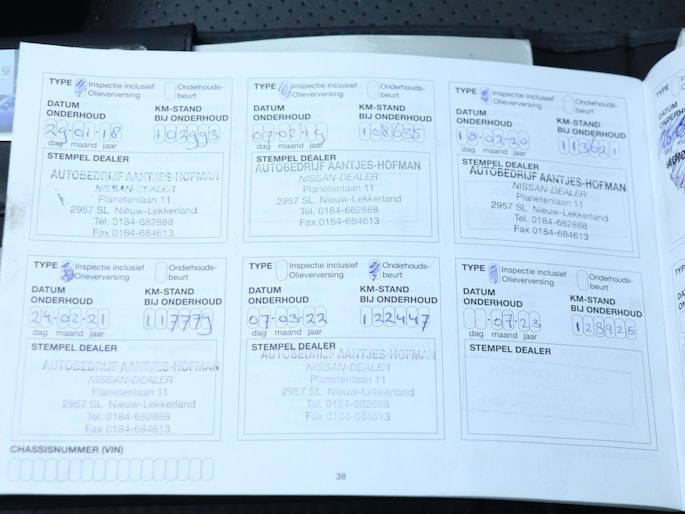 TYPE Inspectie inclusief Olieverversing Onderhouds-beurt
DATUM ONDERHOUD KM-STAND BIJ ONDERHOUD
29-01-18 102993
dag maand jaar
STEMPEL DEALER
AUTOBEDRIJF AANTJES-HOFMAN
NISSAN-DEALER
Planetenlaan 11
2957 SL Nieuw-Lekkerland
Tel. 0184-682888
Fax 0184-684613
TYPE Inspectie inclusief Olieverversing Onderhouds-beurt
DATUM ONDERHOUD KM-STAND BIJ ONDERHOUD
07-02-19 108635
dag maand jaar
STEMPEL DEALER
AUTOBEDRIJF AANTJES-HOFMAN
NISSAN-DEALER
Planetenlaan 11
2957 SL Nieuw-Lekkerland
Tel. 0184-682888
Fax 0184-684613
TYPE Inspectie inclusief Olieverversing Onderhouds-beurt
DATUM ONDERHOUD KM-STAND BIJ ONDERHOUD
-02-20 113621
dag maand jaar
STEMPEL DEALER
AUTOBEDRIJF AANTJES-HOFMAN
NISSAN-DEALER
Planetenlaan 11
2957 SL Nieuw-Lekkerland
Tel. 0184-682888
Fax 0184-684613
TYPE Inspectie inclusief Olieverversing Onderhouds-beurt
DATUM ONDERHOUD KM-STAND BIJ ONDERHOUD
24-02-21 117779
dag maand jaar
STEMPEL DEALER
AUTOBEDRIJF AANTJES-HOFMAN
NISSAN-DEALER
Planetenlaan 11
2957 SL Nieuw-Lekkerland
Tel. 0184-682888
Fax 0184-684613
TYPE Inspectie inclusief Olieverversing Onderhouds-beurt
DATUM ONDERHOUD KM-STAND BIJ ONDERHOUD
07-03-22 122447
dag maand jaar
STEMPEL DEALER
AUTOBEDRIJF AANTJES-HOFMAN
NISSAN-DEALER
Planetenlaan 11
2957 SL Nieuw-Lekkerland
Tel. 0184-682888
Fax 0184-684613
TYPE Inspectie inclusief Olieverversing Onderhouds-beurt
DATUM ONDERHOUD KM-STAND BIJ ONDERHOUD
-07-23 128925
dag maand jaar
STEMPEL DEALER
CHASSISNUMMER (VIN)
38
TYPE
DATUM